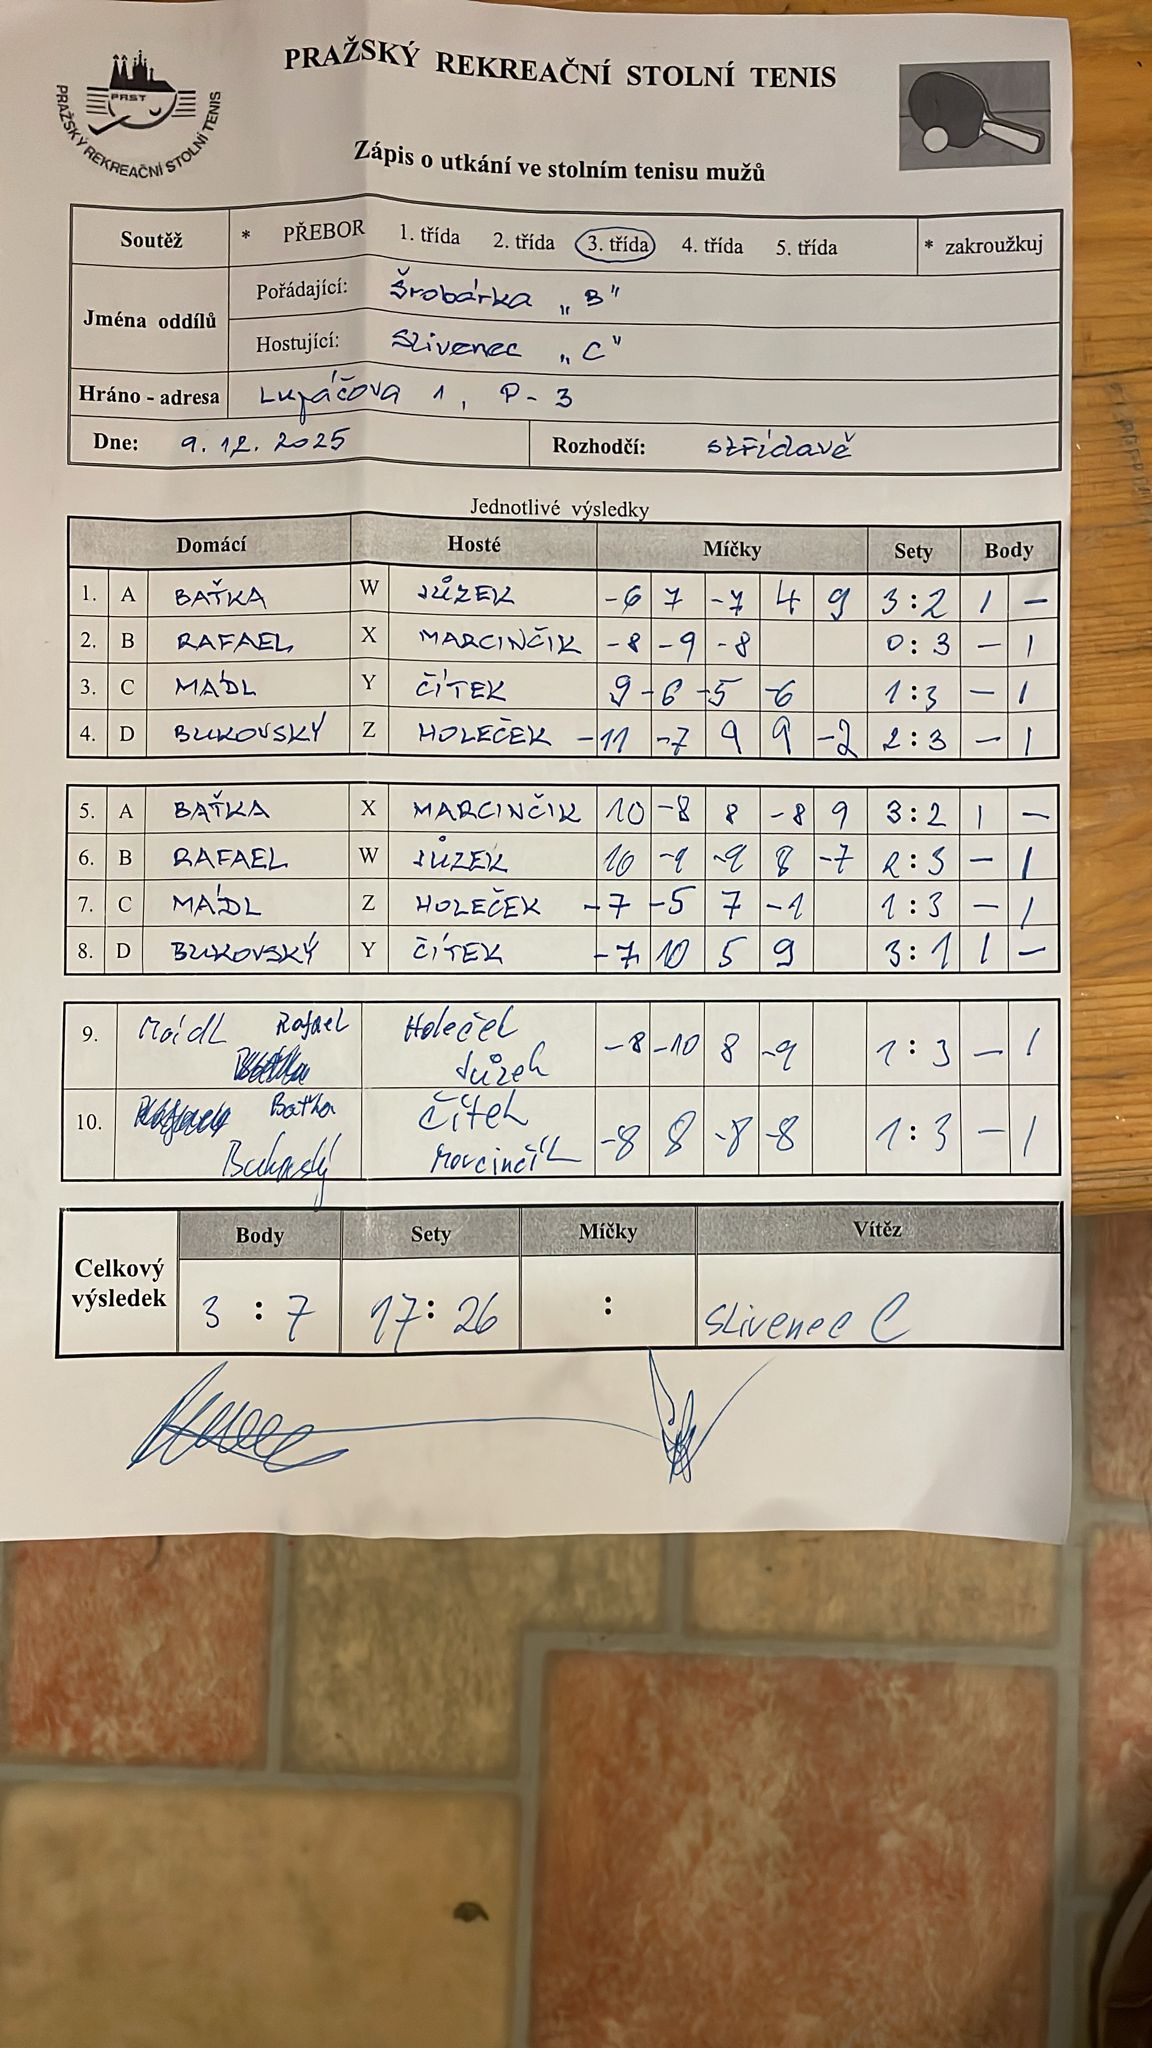 PRAŽSKÝ REKREAČNÍ STOLNÍ TENIS
PRST
PRAŽSKÝ REKREAČNÍ STOLNÍ TENIS
Zápis o utkání ve stolním tenisu mužů
Soutěž * PŘEBOR 1. třída 2. třída 3. třída 4. třída 5. třída * zakroužkuj
Jména oddílů
Pořádající: Šrobárka „B"
Hostující: Slivenec „C"
Hráno - adresa Lupáčova 1, P-3
Dne: 9. 12. 2025 Rozhodčí: střídavě
Jednotlivé výsledky
Domácí Hosté Míčky Sety Body
1. A BAŤKA W JŮZEK -6 7 -7 4 9 3:2 1 -
2. B RAFAEL X MARCINČIK -8 -9 -8 0:3 - 1
3. C MÁDL Y ČÍTEK 9 -6 -5 -6 1:3 - 1
4. D BUKOVSKÝ Z HOLEČEK -11 -7 9 9 -2 2:3 - 1
5. A BAŤKA X MARCINČIK 10 -8 8 -8 9 3:2 1 -
6. B RAFAEL W JŮZEK 10 -9 -9 8 -7 2:3 - 1
7. C MÁDL Z HOLEČEK -7 -5 7 -1 1:3 - 1
8. D BUKOVSKÝ Y ČÍTEK -7 10 5 9 3:1 1 -
9. Mádl Rafael Holeček Jůzek -8 -10 8 -9 1:3 - 1
10. Baťka Bukovský Čítek Marcinčik -8 8 -8 -8 1:3 - 1
Celkový výsledek
Body Sety Míčky Vítěz
3 : 7 17 : 26 : Slivenec C